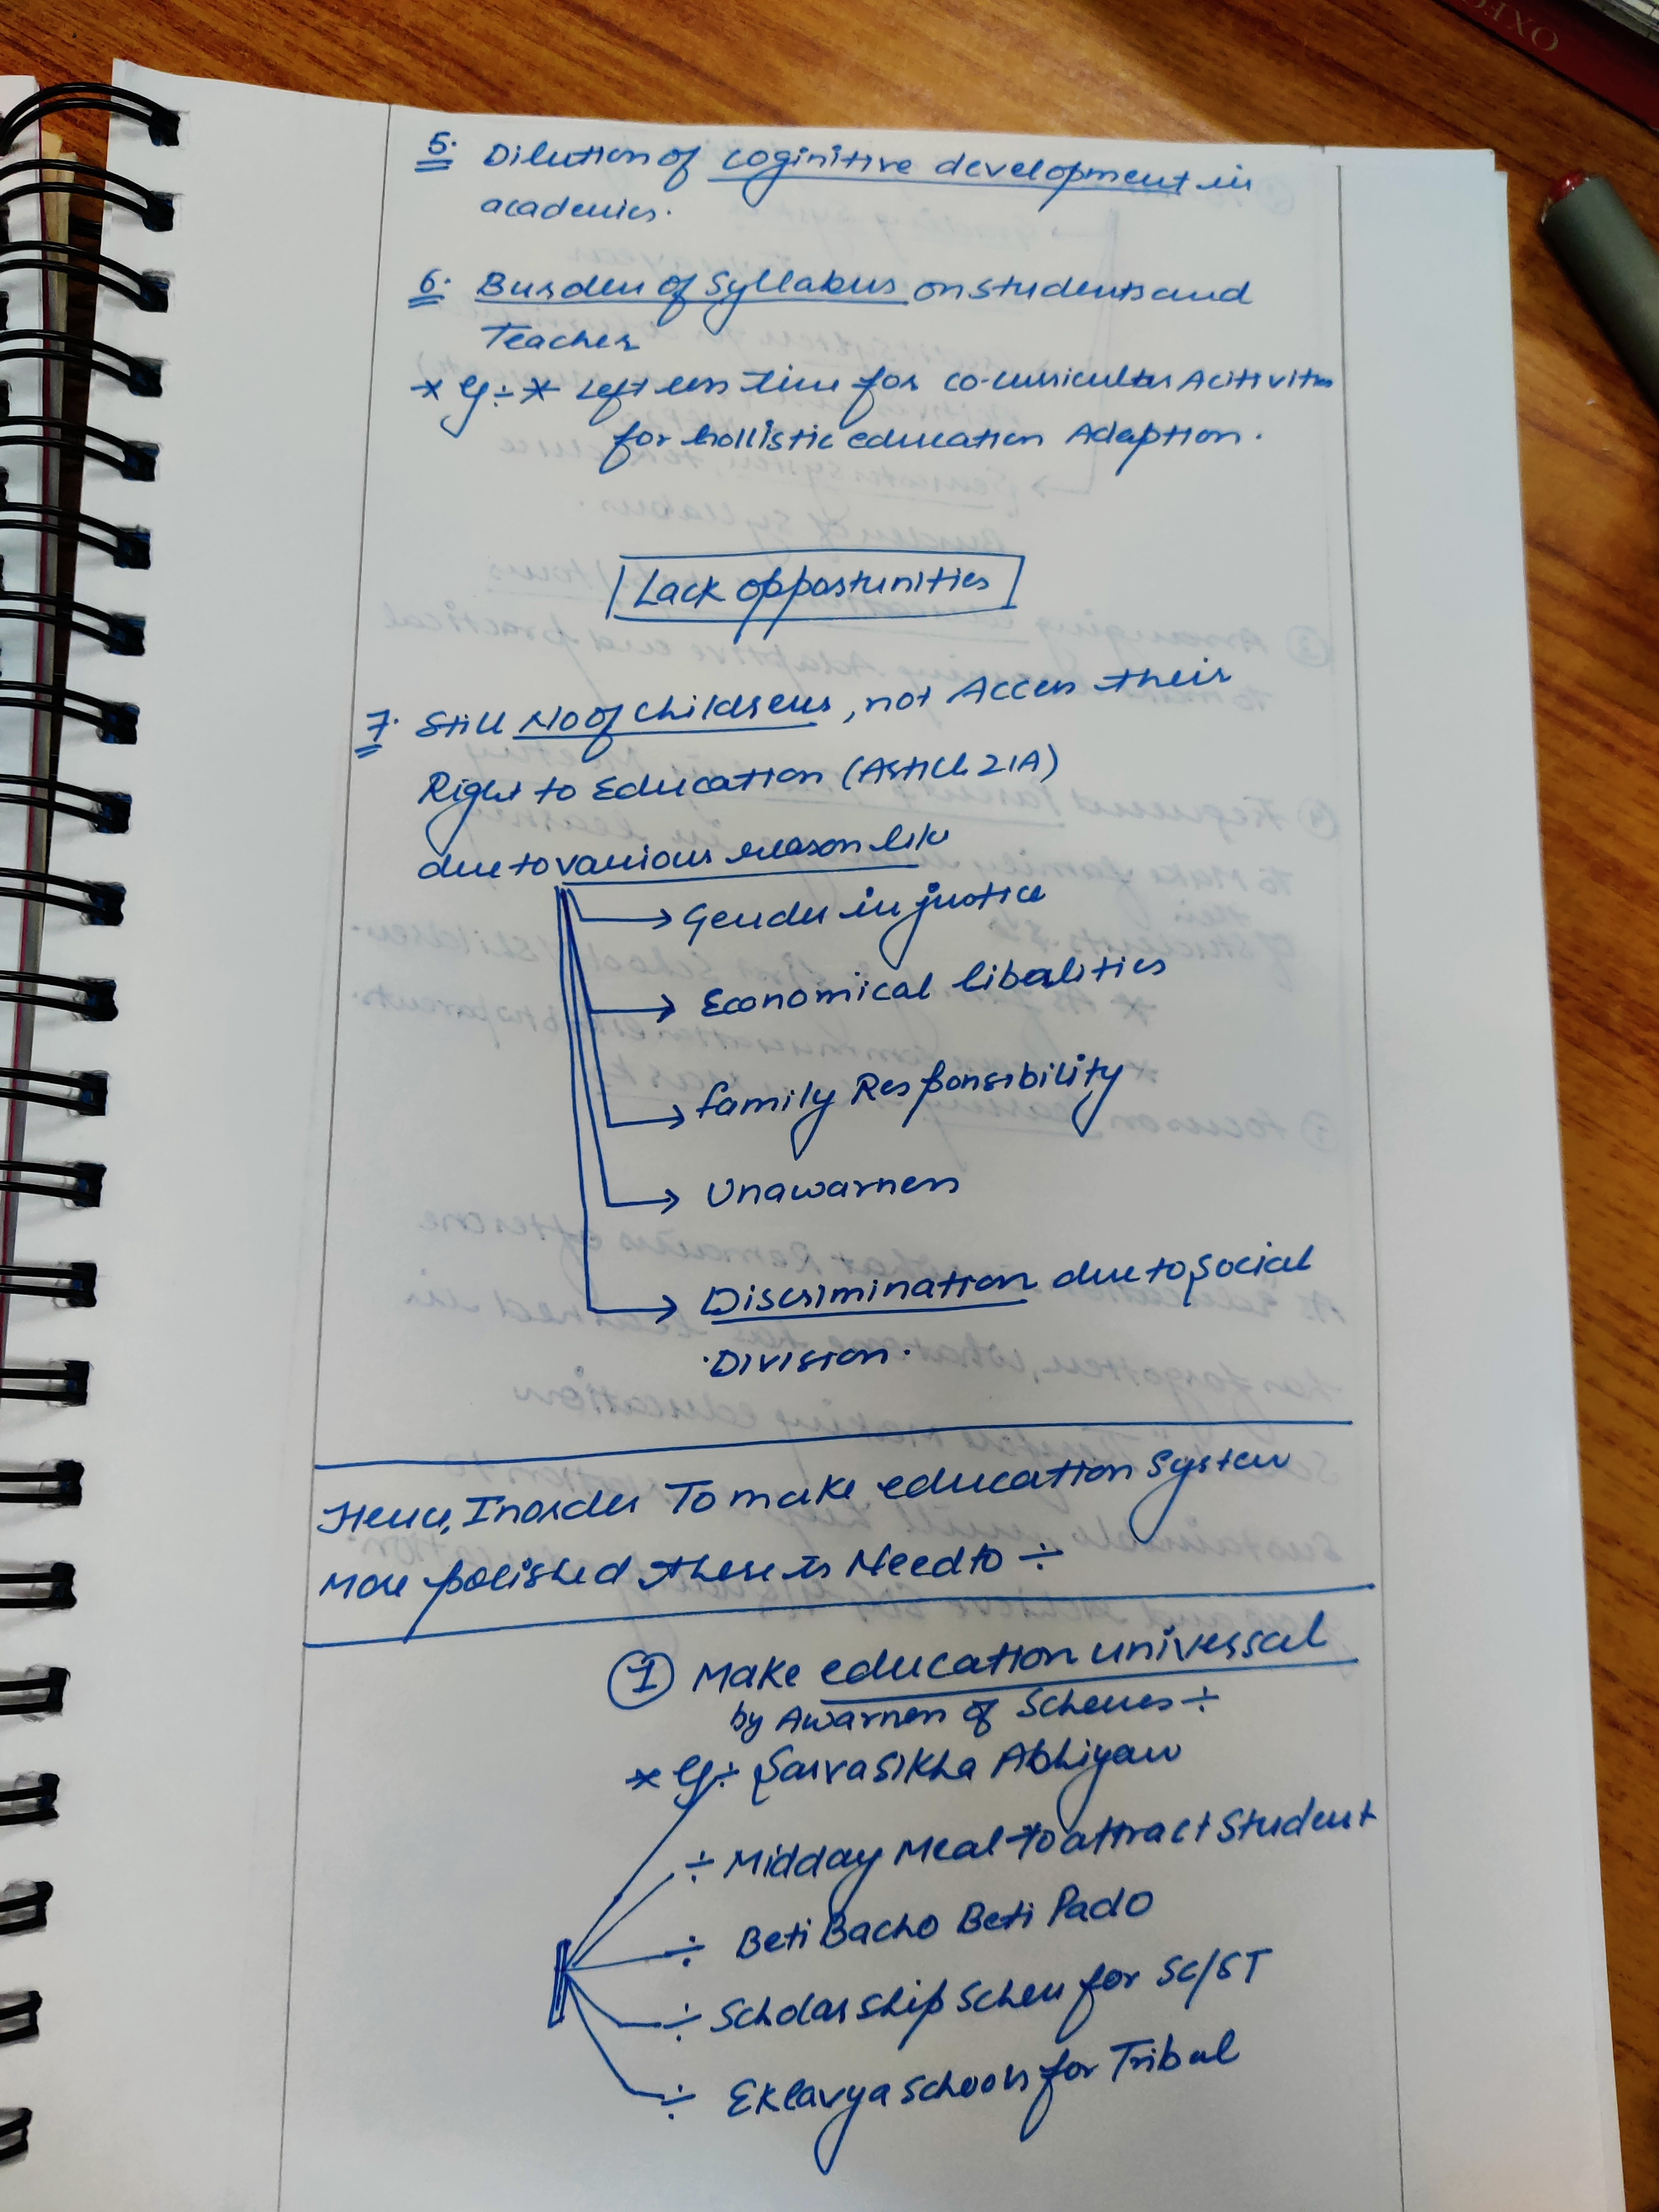 5. Dilution of coginitive development in
academics.
6. Burden of Syllabus on students and
Teacher
* Eg ÷ * Left less time for co-curricular Acitivities
for hollistic education Adaption.
Lack opportunities
7. Still No of childrens, not Access their
Right to Education (Article 21A)
due to various reason like
Gender injustice
Economical libalities
family Responsibility
Unawarness
Discrimination due to social
Division.
Hence, Inorder To make education System
More polished, there is Need to ÷
1 Make education universal
by Awarness of Schemes ÷
* Eg ÷ Sarva Sikha Abhiyan
÷ Midday Meal to attract Student
÷ Beti Bacho Beti Pado
÷ Scholarship Scheme for SC/ST
÷ Eklavya schools for Tribal